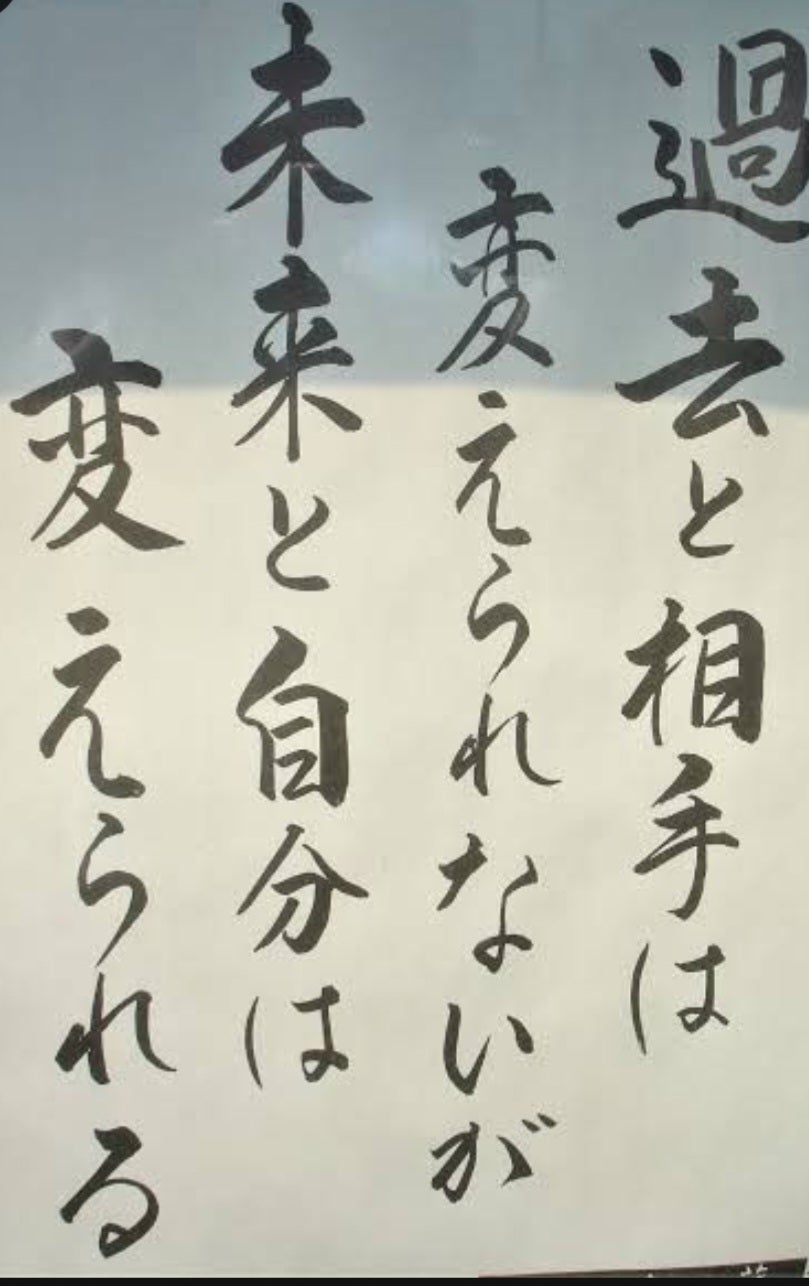 過去と相手は
変えられないが
未来と自分は
変えられる